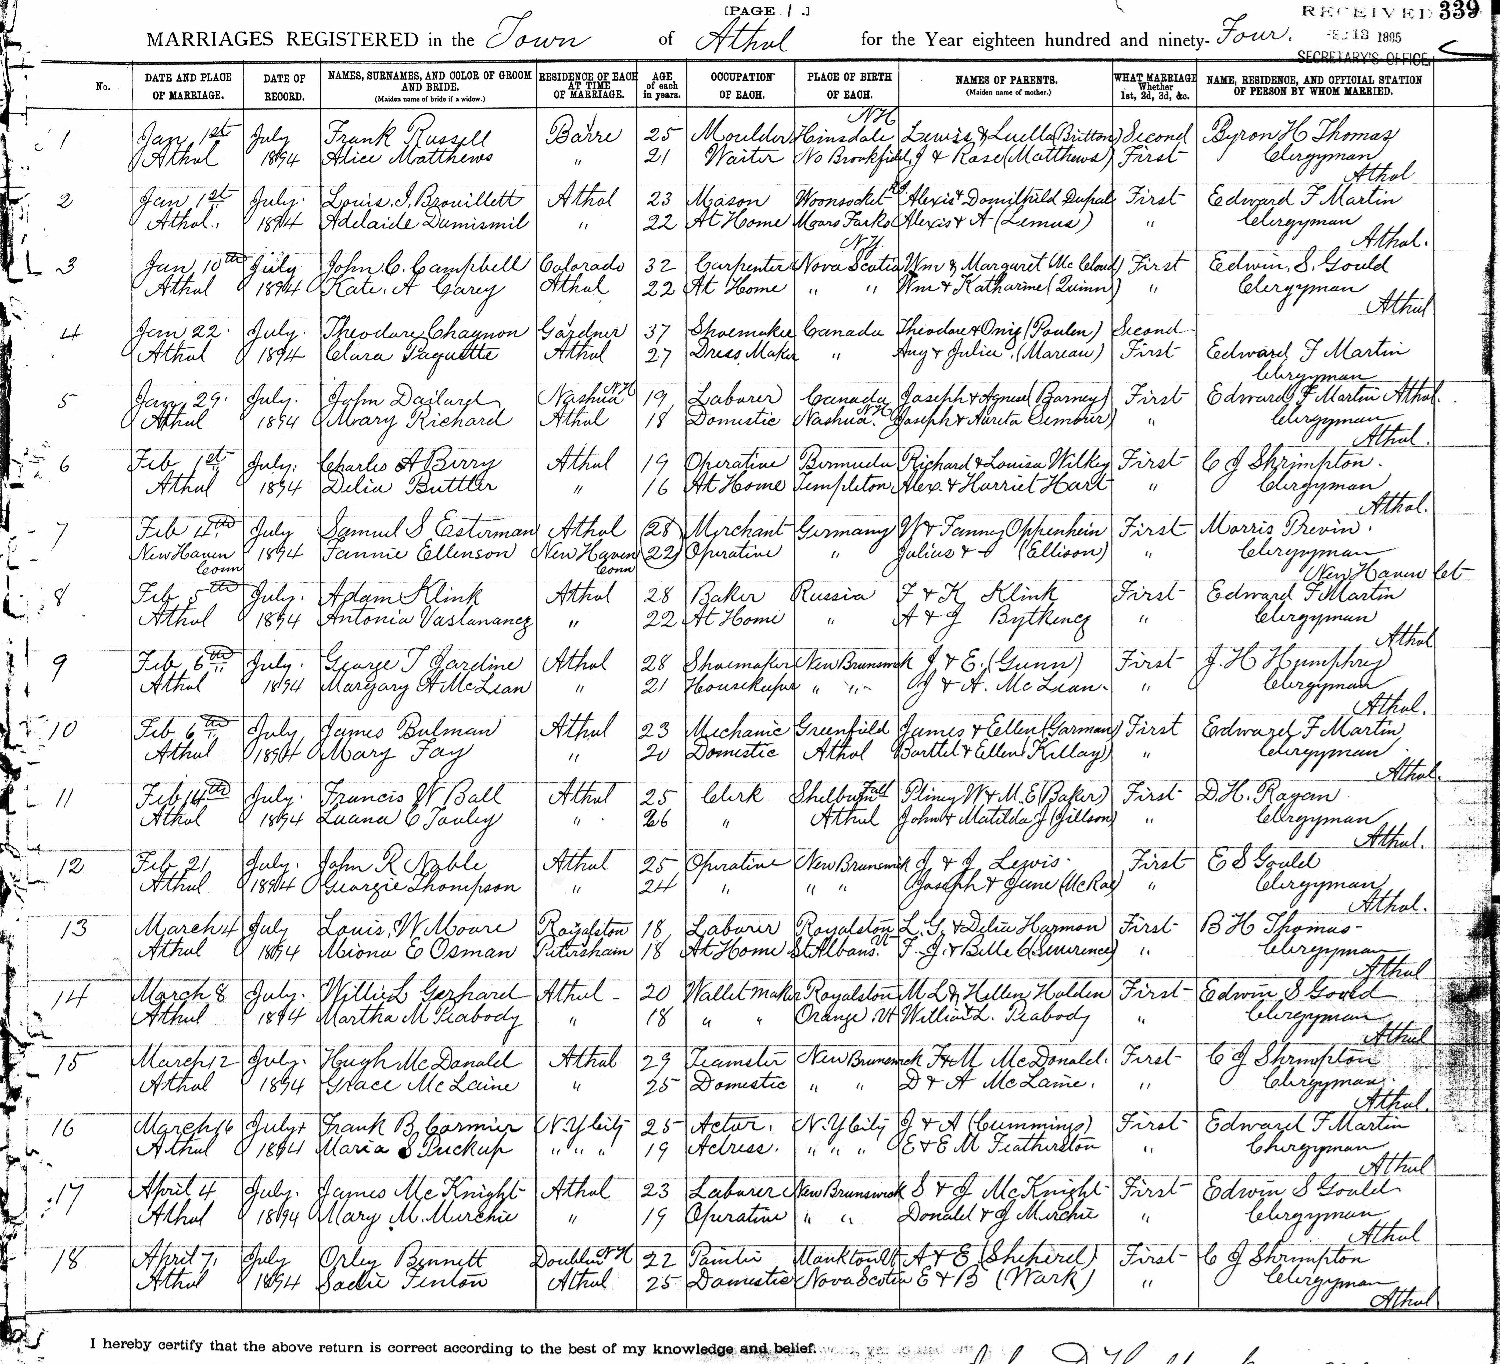 [PAGE 1.]
RECEIVED 339
MARRIAGES REGISTERED in the Town of Athol for the Year eighteen hundred and ninety-Four.
13 1895
SECRETARY'S OFFICE
No. DATE AND PLACE OF MARRIAGE. DATE OF RECORD. NAMES, SURNAMES, AND COLOR OF GROOM AND BRIDE. (Maiden name of bride if a widow.) RESIDENCE OF EACH AT TIME OF MARRIAGE. AGE of each in years. OCCUPATION OF EACH. PLACE OF BIRTH OF EACH. NAMES OF PARENTS. (Maiden name of mother.) WHAT MARRIAGE Whether 1st, 2d, 3d, &c. NAME, RESIDENCE, AND OFFICIAL STATION OF PERSON BY WHOM MARRIED.
NH
1 Jan 1st July Frank Russell Barre 25 Moulder Hinsdale Lewis & Luella (Britton) Second Byron H Thomas
Athol 1894 Alice Matthews " 21 Waiter No Brookfield J & Rose (Matthews) First Clergyman
Athol
2 Jan 1st July. Louis. J. Brouillett Athol 23 Mason Woonsocket Alexis & First Edward F Martin
Athol. 1894 Adelaide Dumismil " 22 At Home Moars Forks Alexis & A (Lemus) " Clergyman
N.Y. Athol.
3 Jan 10th July John C. Campbell Colorado 32 Carpenter Nova Scotia Wm & Margaret McCloud First Edwin. S. Gould
Athol 1894 Kate. A Carey Athol 22 At Home " " Wm & Katharine (Quinn) " Clergyman
Athol
4 Jan 22. July. Theodore Chagnon Gardner 37 Shoemaker Canada Theodore & (Poulen) Second
Athol 1894 Clara Paquette Athol 27 Dress Maker " Aug & Julia. (Mareau) First Edward F Martin
Clergyman
5 Jan 29. July. John Dailard Nashua NH 19 Laborer Canada Joseph & Agnes (Barney) First Edward F Martin Athol.
Athol 1894 Mary Richard Athol 18 Domestic Nashua. NH Joseph & " Clergyman
Athol.
6 Feb 1st July. Charles A Berry Athol 19 Operative Bermuda Richard & Louisa Wilkey First C J Shrimpton.
Athol 1894 Delia Buttler " 16 At Home Templeton Alex. & Harriet Hart " Clergyman
Athol.
7 Feb 4th July Samuel S Esterman Athol (28) Merchant Germany W & Fanny Oppenhein First Morris Previn.
New Haven 1894 Fannie Ellenson New Haven (22) Operative " Julius & (Ellison) " Clergyman
Conn Conn New Haven Ct
8 Feb 5th July. Adam Klink Athol 28 Baker Russia F & K Klink First Edward F Martin
Athol 1894 Antonia Vaslanancz " 22 At Home " A & J Bytkencz " Clergyman
Athol
9 Feb 6th July. George T Jardine Athol 28 Shoemaker New Brunswick J & E. (Gunn) First J. H Humphrey
Athol 1894 Margary A McLean " 21 Housekeeper " " J & A. McLean. " Clergyman
Athol.
10 Feb 6th July James Bulman Athol 23 Mechanic Greenfield James & Ellen (Garman) First Edward F Martin
Athol 1894 Mary Fay " 20 Domestic Athol Barttel & Ellen Killay) " Clergyman
Athol.
11 Feb 14th July. Francis W Ball Athol 25 Clerk Shelburn Fall Pliney W & M. E (Baker) First D. H. Ragan
Athol 1894 Luana C Tooley " 26 " Athol John & Matilda J (Gillson) " Clergyman
Athol.
12 Feb 21 July. John R Noble Athol 25 Operative New Brunswick J. & J. Lewis. First E S Gould
Athol 1894 Georgie Thompson " 24 " " " Joseph & Jane (McRae) " Clergyman
Athol.
13 March 4 July Louis. W Moore Royalston 18 Laborer Royalston L. G. & Delia Harmon First B H Thomas
Athol 1894 Miona E Osman Petersham 18 At Home St Albans. Vt F. J. & Belle " Clergyman
Athol
14 March 8 July. Willie L Gerhard Athol 20 Wallet Maker Royalston M L & Hellen Holden First Edwin S Gould
Athol 1894 Martha M Peabody " 18 " " Orange. Vt Peabody " Clergyman
Athol
15 March 12 July. Hugh McDanald Athol 29 Teamster New Brunswick H & M McDonald. First C J Shrimpton
Athol 1894 Grace McLaine " 25 Domestic " " D & A McLaine. " Clergyman.
Athol.
16 March 16 July Frank B. Cormier N. Y City 25 Actor. N. Y City J & A (Cummings) First Edward F Martin
Athol 1894 Maria S Puckup " " " 19 Actress. " " " E & E M Featherston Clergyman
Athol
17 April 4 July. James McKnight Athol 23 Laborer New Brunswick S & J McKnight First Edwin S Gould
Athol 1894 Mary M. Murchie " 19 Operative " " Donald & J Murchie " Clergyman
Athol
18 April 7, July Orley Bennett Doublin NH 22 Painter Monkton Vt A & E (Sheperd) First C J Shrimpton
Athol 1894 Sadie Fenton Athol 25 Domestic Nova Scotia E & B (Wark) " Clergyman
Athol
I hereby certify that the above return is correct according to the best of my knowledge and belief.